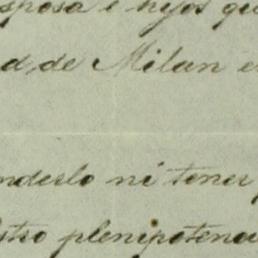 esposa e hijos qu
d, de Milan e
nderlo ni tener
stro plenipotenci